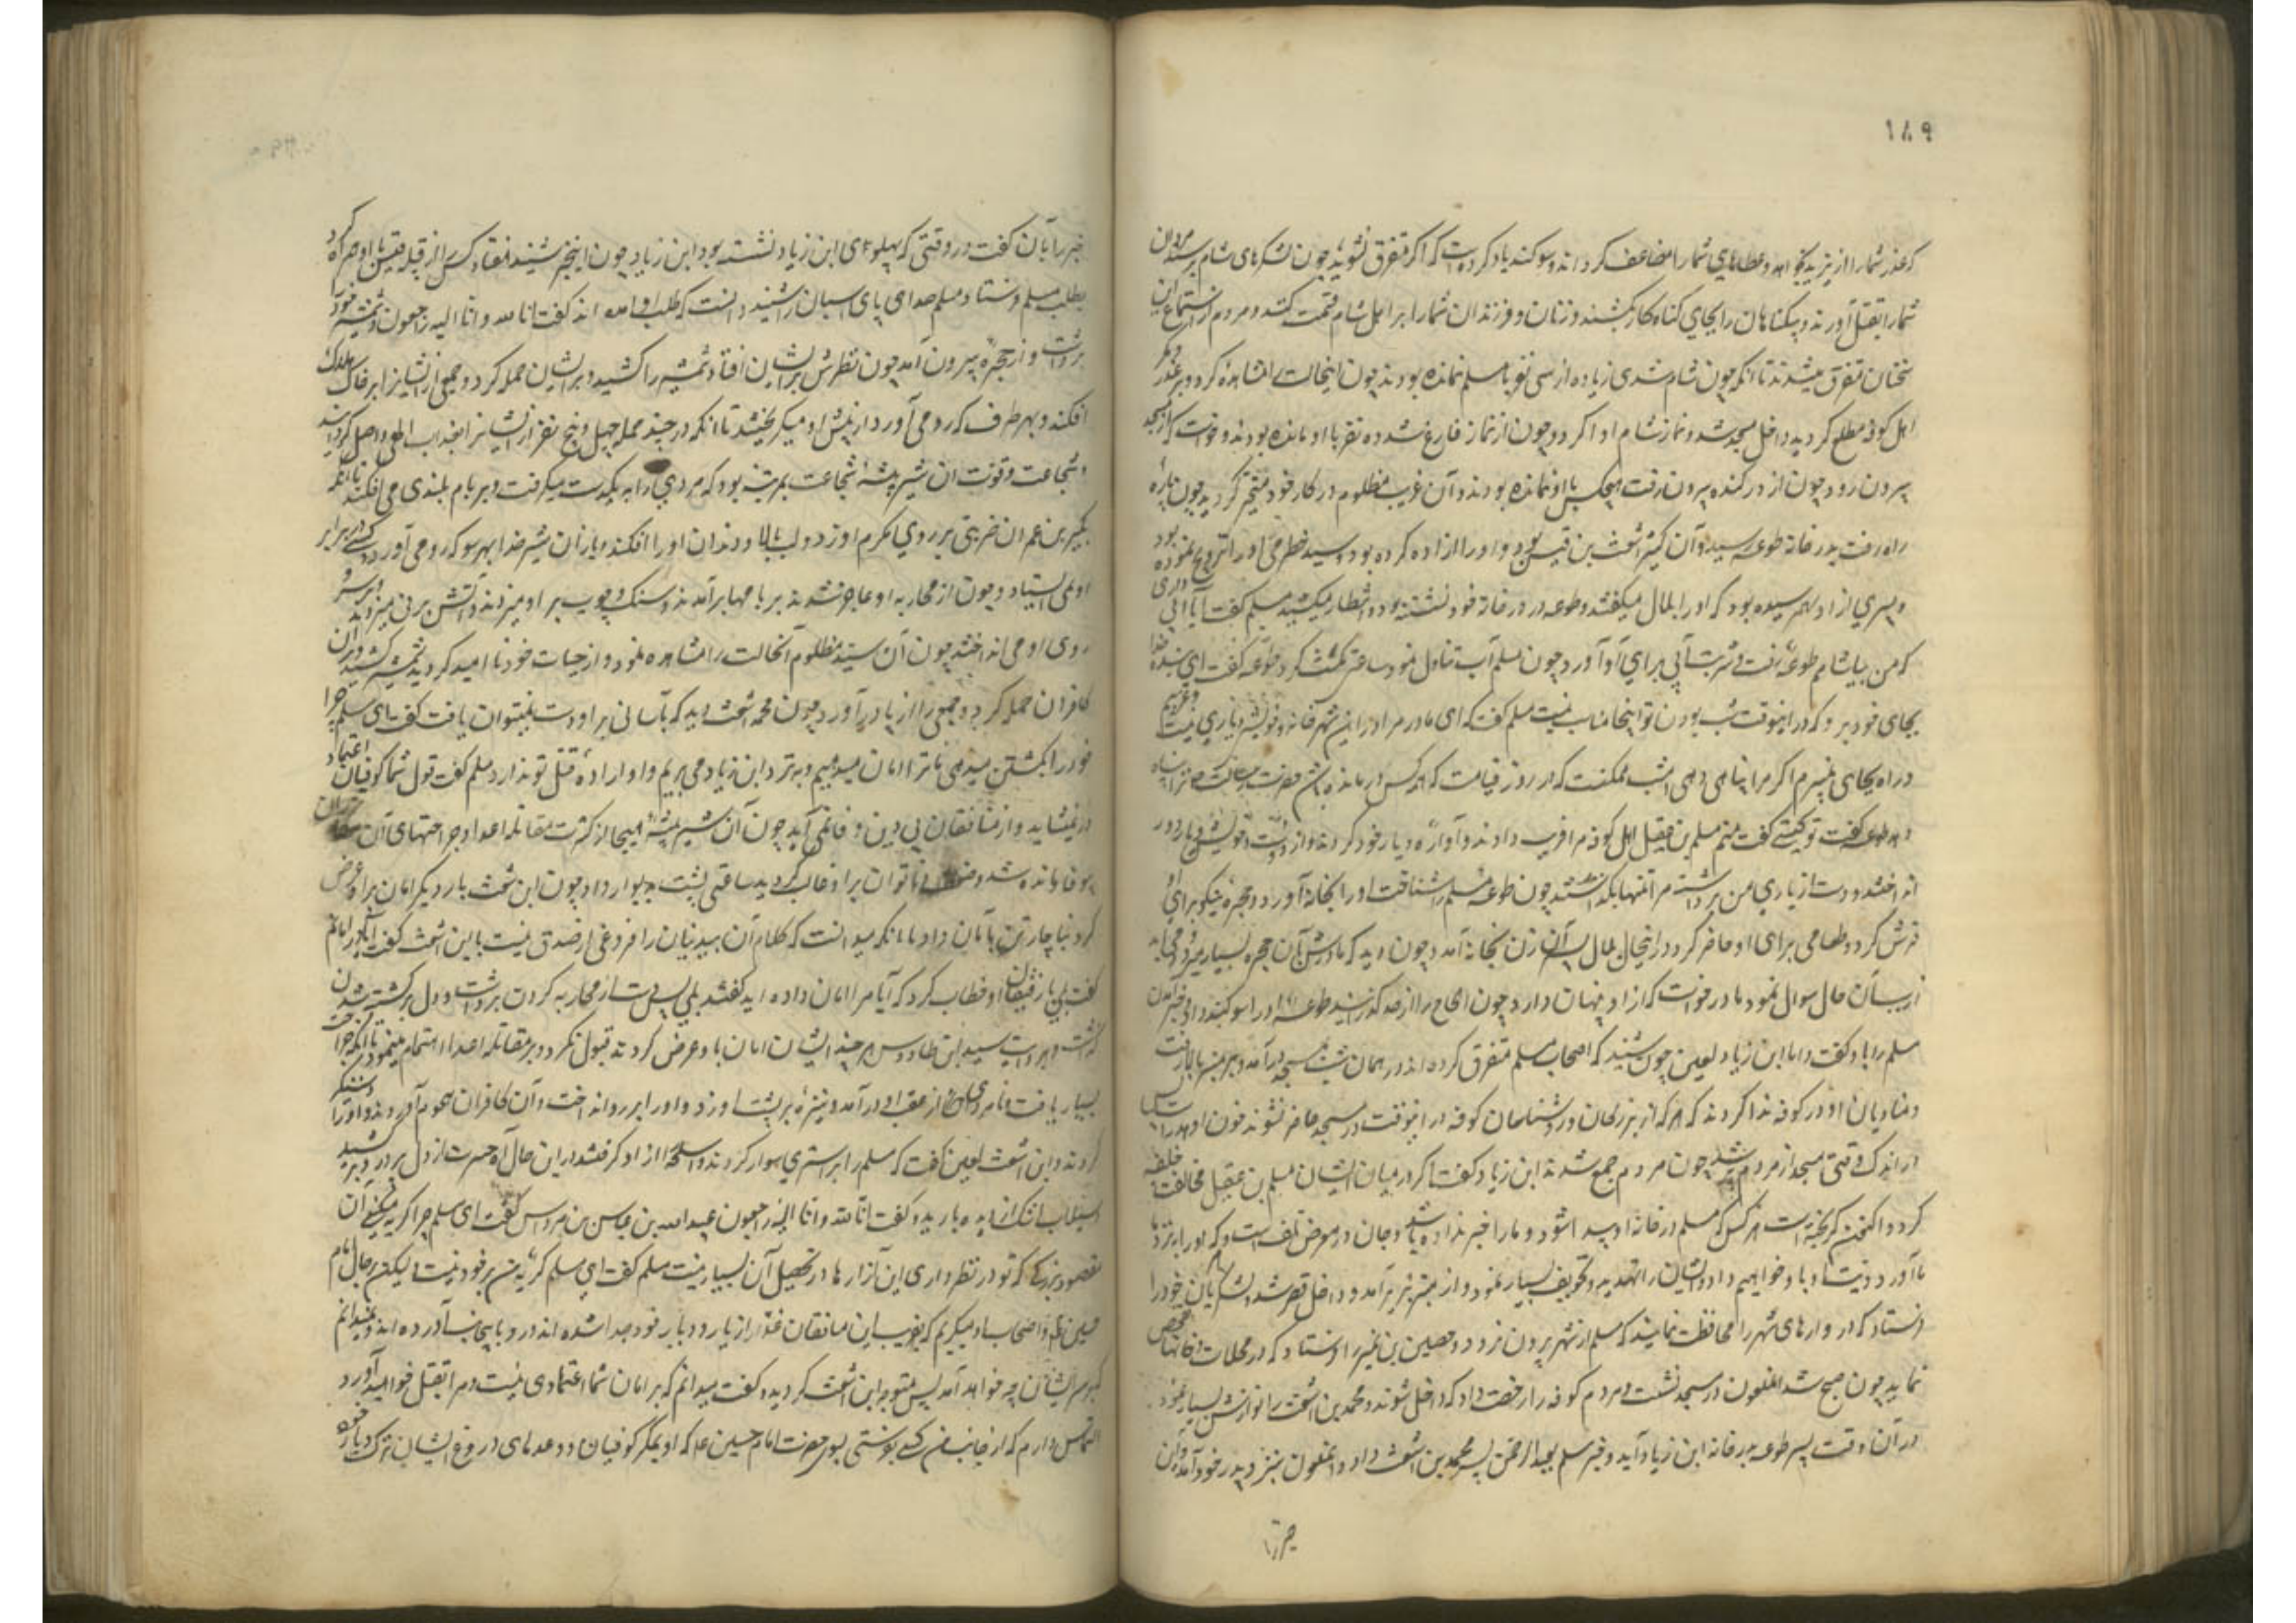 ۱۸۹
که عذر شما را از یزید بخواهد و عطاهای شما را مضاعف گرداند و سوکند یاد کرده است که اکر متفرق نشوید چون لشکرهای شام برسند مردان
شما را بقتل آورند و بیکناهان را بجای کناه کار بکشند و زنان و فرزندان شما را بر اهل شام قسمت کنند و مردم از استماع این
سخنان متفرق میشدند تا آنکه چون شام شد زیاده از سی نفر با مسلم نمانده بودند چون اینحالت را مشاهده کرد و بر غدر و مکر
اهل کوفه مطلع کردید داخل مسجد شد و نماز شام ادا کرد و چون از نماز فارغ شد ده نفر با او مانده بودند و خواست که از مسجد
بیرون رود چون از در کنده بیرون رفت هیچکس با او نمانده بودند و آن غریب مظلوم در کار خود متحیر کردید چون پاره
راه رفت بدر خانه طوعه رسید و آن کنیز اشعث بن قیس بود و او را ازاده کرده بود و اسید حضرمی او را تزویج نموده بود
و پسری از او بهم رسیده بود که او را بلال میکفتند و طوعه در در خانه خود نشسته بود و انتظار میکشید مسلم کفت آیا آبی داری
که من بیاشامم طوعه رفت و شربت آبی برای او آورد چون مسلم آب تناول نمود ساعتی مکث کرد طوعه کفت ای بنده خدا
بجای خود برو که در اینوقت شب بودن تو اینجا مناسب نیست مسلم کفت که ای مادر مرا در این شهر خانه و خویشی و یاری نیست و غریبم
در راه بجای نمیبرم اکر مرا پناهی دهی امشب ممکنست که در روز قیامت که هر کس درمانده باشد حضرت رسالت ص ترا پناه
دهد طوعه کفت تو کیستی کفت منم مسلم بن عقیل اهل کوفه مرا فریب دادند و آواره دیار خود کردند و از دوست و خویش و یار دور
انداختند و دست از یاری من برداشتند مرا تنها بکذاشتند چون طوعه مسلم را شناخت او را بخانه آورد و حجره نیکو برای او
فرش کرد و طعامی برای او حاضر کرد در اینحال بلال پسر آن زن بخانه آمد و چون دید که مادرش بآن حجره بسیار میرود و می آید
از سبب آن حال سوال نمود مادر خواست که از او پنهان دارد چون الحاح را از حد کذرانید طوعه او را سوکند داد خبر آمدن
مسلم را باو کفت و اما ابن زیاد لعین چون شنید که اصحاب مسلم متفرق کرده اند در همان شب بمسجد در آمد و بر منبر بالا رفت
و منادیان او در کوفه ندا کردند که هر که از بزرکان و روشناسان کوفه در اینوقت در مسجد حاضر نشوند خون او هدر است پس
در اندک وقتی مسجد از مردم پر شد چون مردم جمع شدند ابن زیاد کفت که در میان ایشان مسلم بن عقیل مخالفت خلیفه
کرد و اکنون کریخته است هر کس که مسلم در خانه او پیدا شود و ما را خبر نداده باشد جان و در معرض تلف است و هر که او را نزد ما
ما آورد دیت او باو خواهیم داد و ایشان را تهدید و تخویف بسیار نمود و از منبر بزیر آمد و داخل قصر شد و لشکریان خود را
فرستاد که در وازهای شهر را محافظت نمایند که مسلم از شهر بیرون نرود و حصین بن نمیر را فرستاد که در محلات و خانها تفحص
نماید چون صبح شد انملعون در مسجد نشست و مردم کوفه را رخصت داد که داخل شوند و محمد بن اشعث را نوازش بسیار نمود
در آن وقت پسر طوعه بدر خانه ابن زیاد آید و خبر مسلم بعبد الرحمن پسر محمد بن اشعث داد و انملعون بنزد پدر خود آمد و این
خبر را
خبر را بآن کفت در وقتی که پهلوی ابن زیاد نشسته بود ابن زیاد چون اینخبر شنید هفتاد کس از قبیله قیس با او همراه کرد
بطلب مسلم فرستاد مسلم صدای پای اسبان را شنید دانست که بطلب او آمده اند کفت انا لله و انا الیه راجعون و شمشیر خود
برداشت و از حجره بیرون آمد چون نظرش بر ایشان افتاد شمشیر را کشید و بر ایشان حمله کرد و جمعی از ایشانرا بر خاک هلاک
افکند و بهر طرف که رو می آورد از پیش او میکریختند تا آنکه در چند حمله چهل و پنج نفر از ایشانرا بعذاب الهی واصل کردانید
و شجاعت و قوت ان شیر بیشه شجاعت بمرتبه بود که مردی را به یکدست میکرفت و بر بام بلندی می افکند تا آنکه
بکیر بن حمران ضربتی بر روی مکرم او زد و لب بالا و دندان او را افکند و باز آن شیر خدا بهر سو که رو می آورد کسی در برابر
او نمی ایستاد و چون از محاربه او عاجز شدند بر بامها بر آمدند و سنک و چوب بر او میزدند و آتش بر نی میزدند و بر سر و
روی او می انداختند چون آن سید مظلوم آنحالت را مشاهده نمود و از حیات خود نا امید کردید شمشیر کشید و بر ان
کافران حمله کرد و جمعی را از پا در آورد چون محمد اشعث دید که بآسانی بر او دست نمیتوان یافت کفت ای مسلم چرا
خود را بکشتن میدهی ما ترا امان میدهیم و بنزد ابن زیاد می بریم و او اراده قتل تو ندارد مسلم کفت قول شما کوفیان اعتماد
را نمیشاید و از منافقان بی دین وفا نمی آید چون آن شیر بیشه هیجا از کثرت مقاتله اعدا و جراحتهای آن مکاران
بیوفا مانده شد و ضعف و ناتوان بر او غالب کردید ساعتی پشت بدیوار داد چون ابن اشعث بار دیکر امان بر او عرض
کرد ناچار تن بامان داد با آنکه میدانست که کلام آن بیدینان را فروغی از صدق نیست بابن اشعث کفت که آیا در امانم
کفت بلی با رفیقان او خطاب کرد که آیا مرا امان داده اید کفتند بلی پس دست از محاربه کردن برداشت و دل بر کشته شدن
کذاشت و بروایت سید ابن طاووس هر چند ایشان امان باو عرض کردند قبول نکرد و بر مقاتله اعدا اهتمام مینمود تا آنکه جراحت
بسیار یافت و نامردی از عقب او در آمد و نیزه بر پشت او زد و او را بر رو انداخت و آن کافران هجوم آوردند و او را دستکیر
کردند و ابن اشعث لعین کفت که مسلم را بر استری سوار کردند و اسلحه را از او کرفتند در این حال آه حسرت از دل پر درد بر کشید
و سیلاب اشک از دیده بارید و کفت انا لله و انا الیه راجعون عبید الله بن عباس بن مرداس کفت ای مسلم چرا کریه میکنی آن
مقصود بزرکی که تو در نظر داری این آزارها در تحصیل آن بسیار نیست مسلم کفت ای مسلم کریه من بر خود نیست لیکن بر حال امام
حسین ع و اصحاب او میکریم که بفریب این منافقان غدار از یار و دیار خود جدا شده اند و رو باینجانب آورده اند و نمیدانم
که بر سر ایشان چه خواهد آمد پس متوجه ابن اشعث کردید و کفت میدانم که بر امان شما اعتمادی نیست و مرا بقتل خواهید آورد
التماس دارم که از جانب من کسی بفرستی بسوی حضرت امام حسین ع که او بمکر کوفیان و وعدهای دروغ ایشان ترک دیار خود